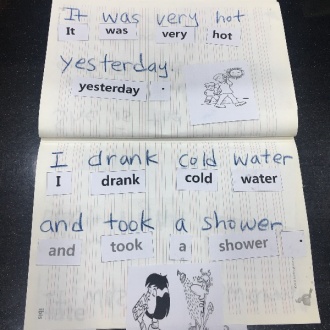 It was very hot
It was very hot
yesterday.
yesterday .
I drank cold water
I drank cold water
and took a shower
and took a shower